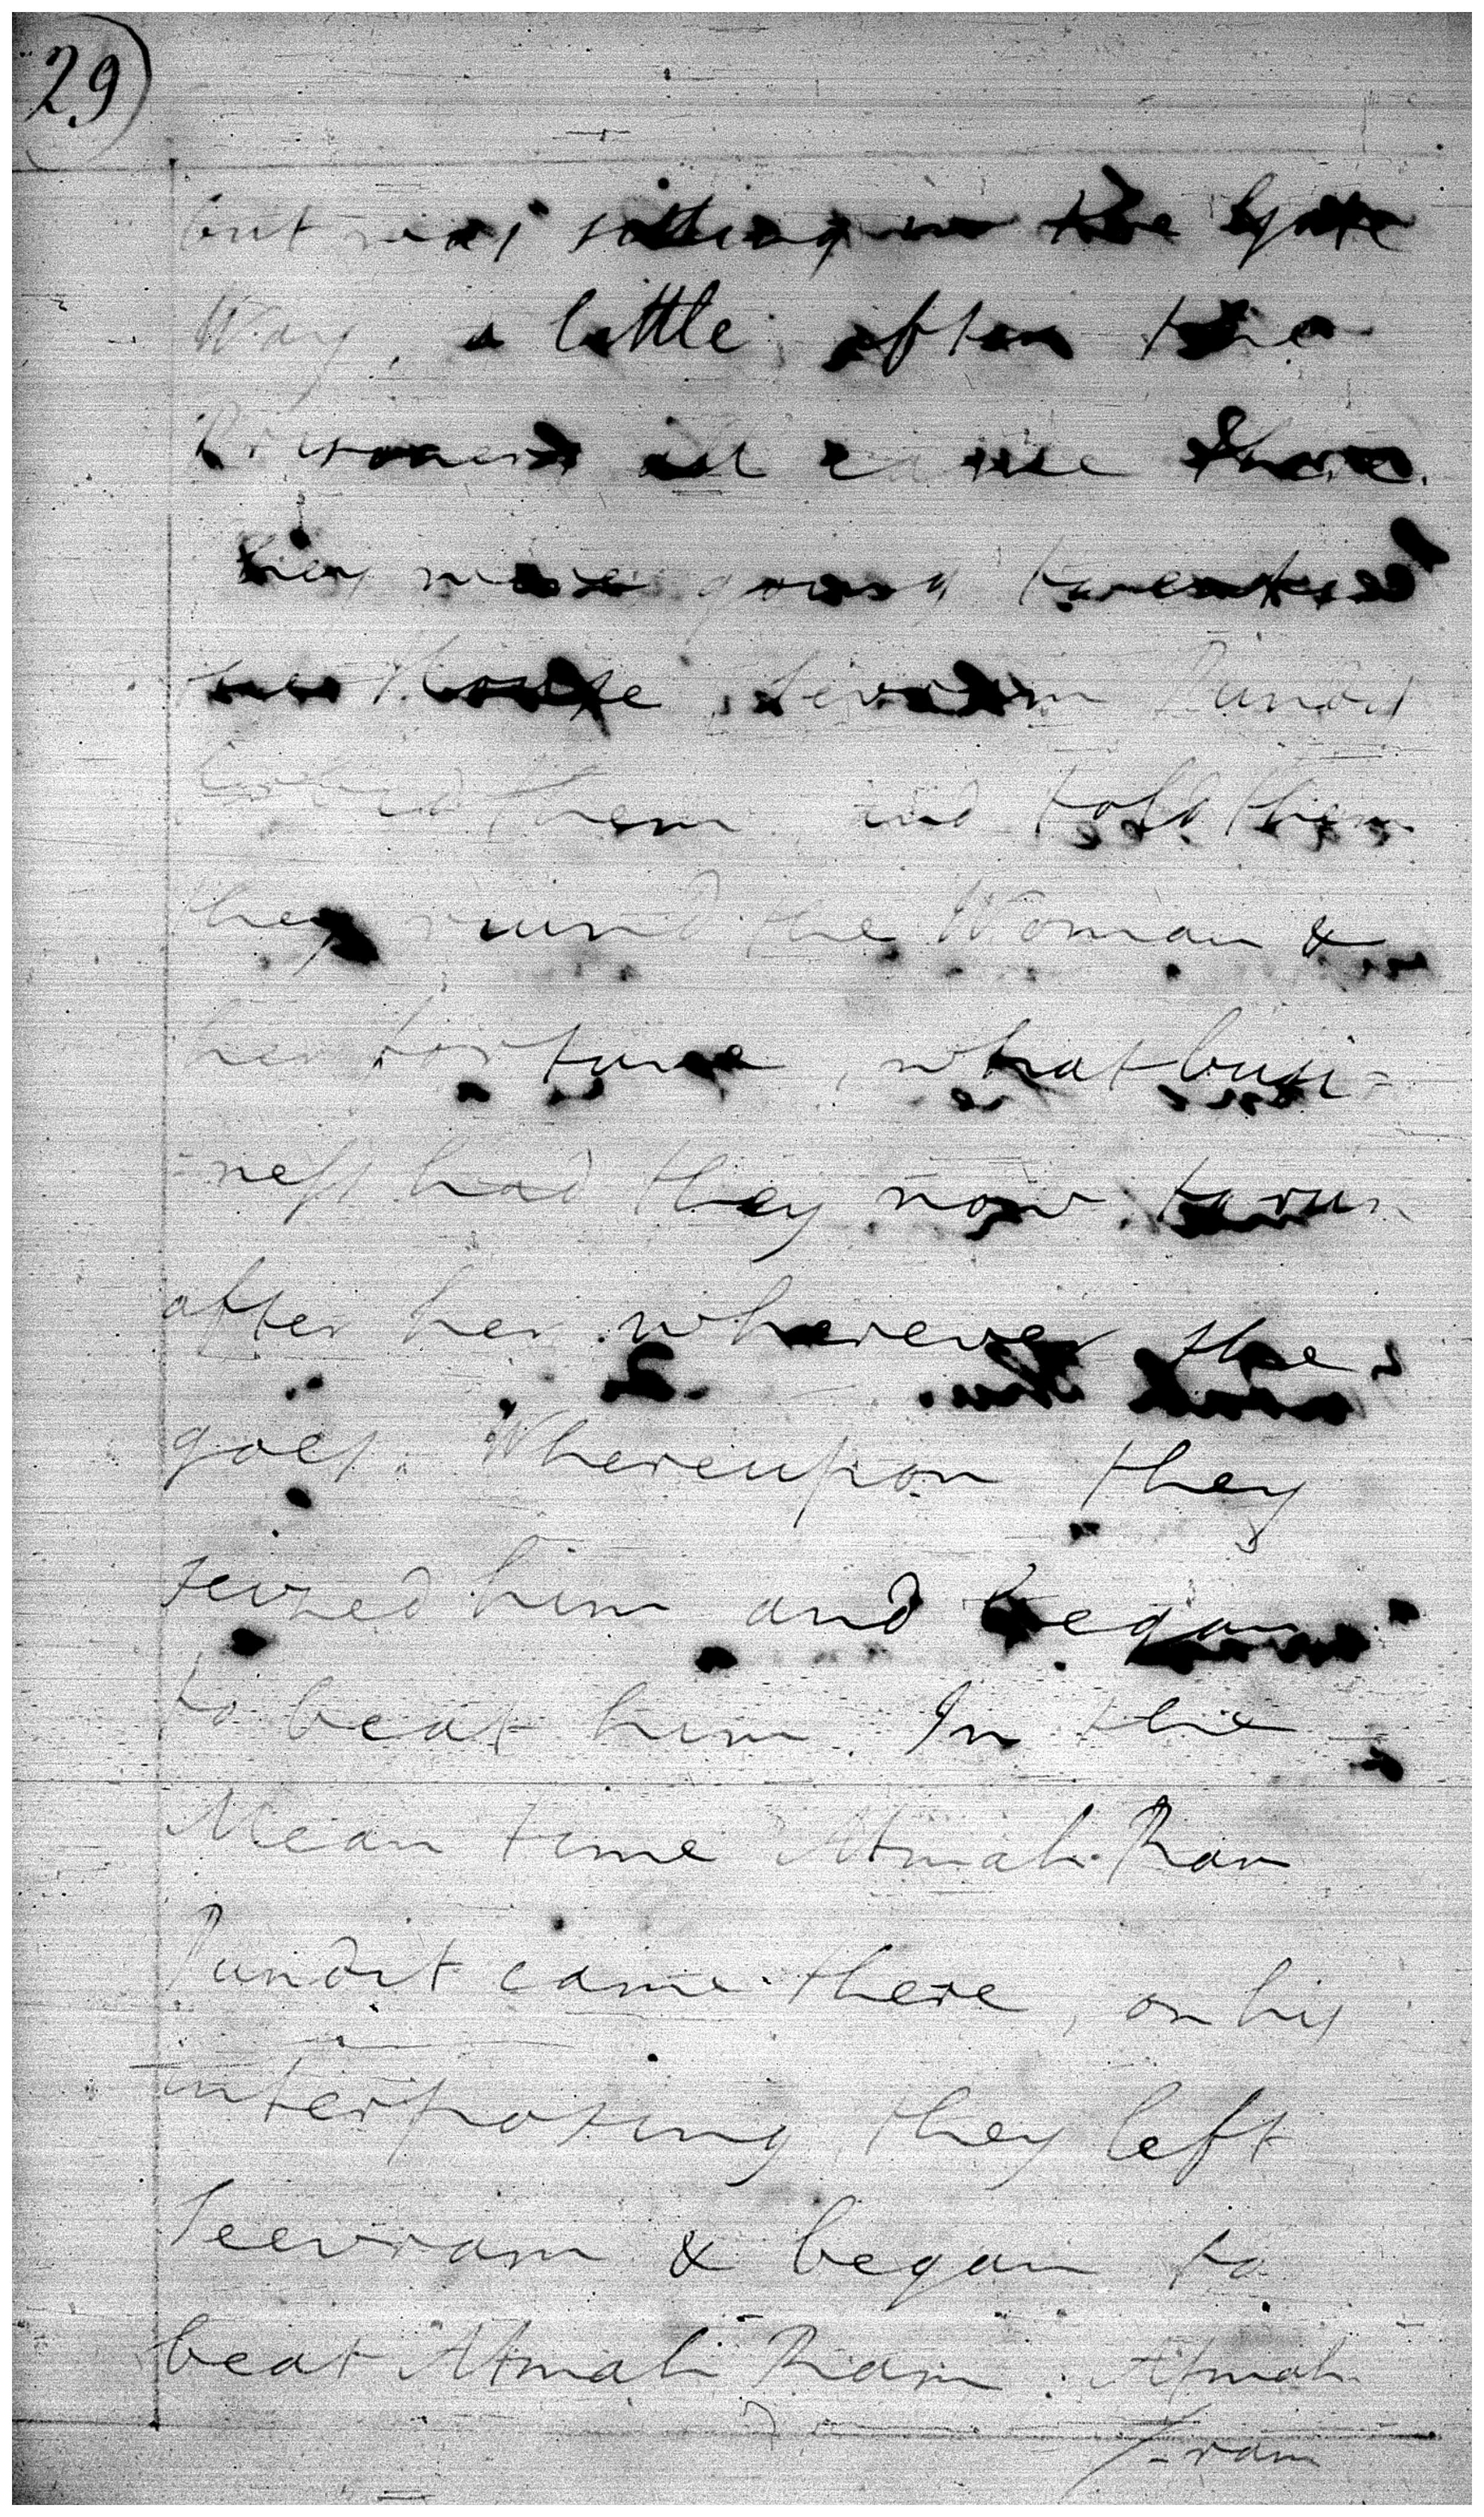 29
but was sitting in the Gate
Way, a little after the
Prisoners all came there.
they were going towards
her House, Jeevram Pundit
them and told them
they ruind the Woman &
her fortune, what busi=
=ness had they now to run
after her wherever she
goes. Whereupon they
seized him and began
to beat him. In the
Mean time Atmah Ram
Pundit came there, on his
interposing they left
Jeevram & began to
beat Atmah Ram. Atmah
ram